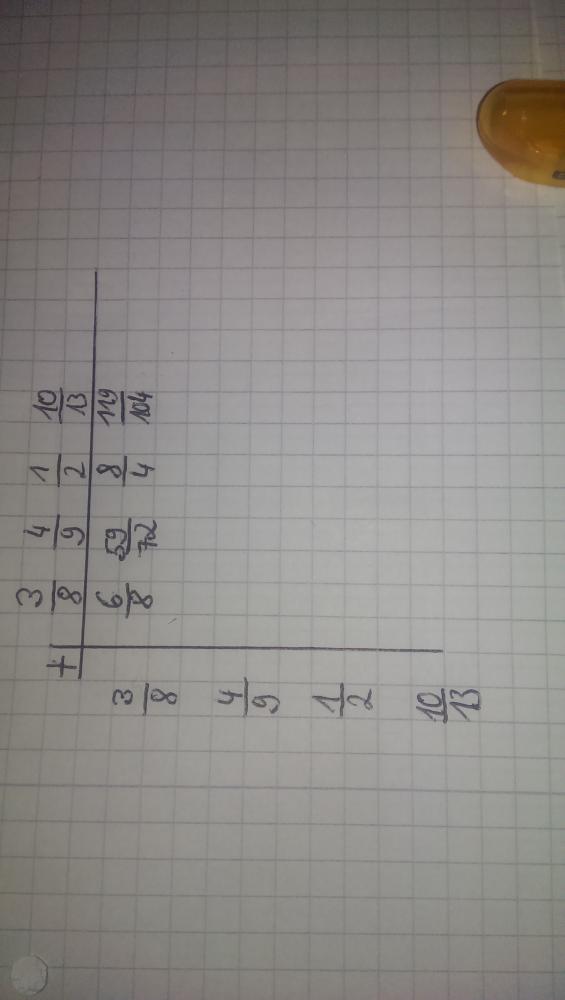 + 3/8 4/9 1/2 10/13
3/8 6/8 59/72 8/4 119/104
4/9
1/2
10/13